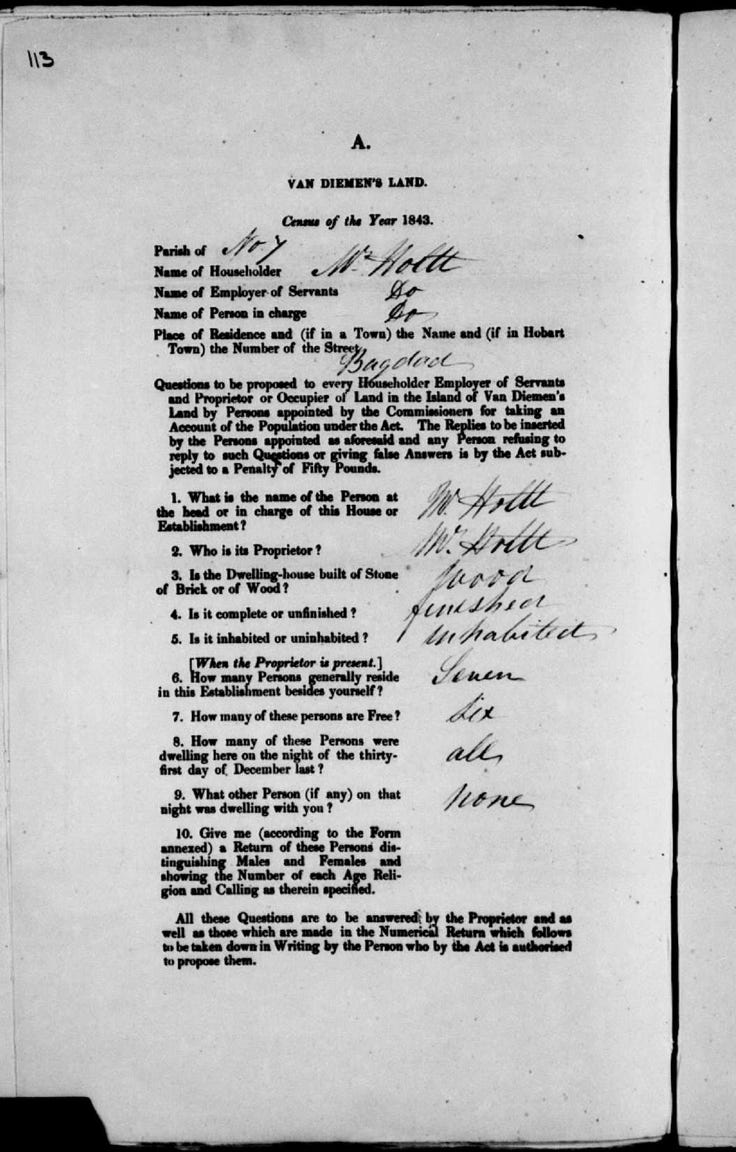 113
A.
VAN DIEMEN'S LAND.
Census of the Year 1843.
Parish of No. 7
Name of Householder Mr. Holtt
Name of Employer of Servants Do
Name of Person in charge Do
Place of Residence and (if in a Town) the Name and (if in Hobart
Town) the Number of the Street
Bagdad
Questions to be proposed to every Householder Employer of Servants
and Proprietor or Occupier of Land in the Island of Van Diemen's
Land by Persons appointed by the Commissioners for taking an
Account of the Population under the Act. The Replies to be inserted
by the Persons appointed as aforesaid and any Person refusing to
reply to such Questions or giving false Answers is by the Act sub-
jected to a Penalty of Fifty Pounds.
1. What is the name of the Person at
the head or in charge of this House or
Establishment? Mr. Holtt
2. Who is its Proprietor? Mr. Holtt
3. Is the Dwelling-house built of Stone
of Brick or of Wood? Wood
4. Is it complete or unfinished? finished
5. Is it inhabited or uninhabited? inhabited
[When the Proprietor is present.]
6. How many Persons generally reside
in this Establishment besides yourself? Seven
7. How many of these persons are Free? Six
8. How many of these Persons were
dwelling here on the night of the thirty-
first day of December last? all
9. What other Person (if any) on that
night was dwelling with you? none
10. Give me (according to the Form
annexed) a Return of these Persons dis-
tinguishing Males and Females and
showing the Number of each Age Reli-
gion and Calling as therein specified.
All these Questions are to be answered by the Proprietor and as
well as those which are made in the Numerical Return which follows
to be taken down in Writing by the Person who by the Act is authorised
to propose them.